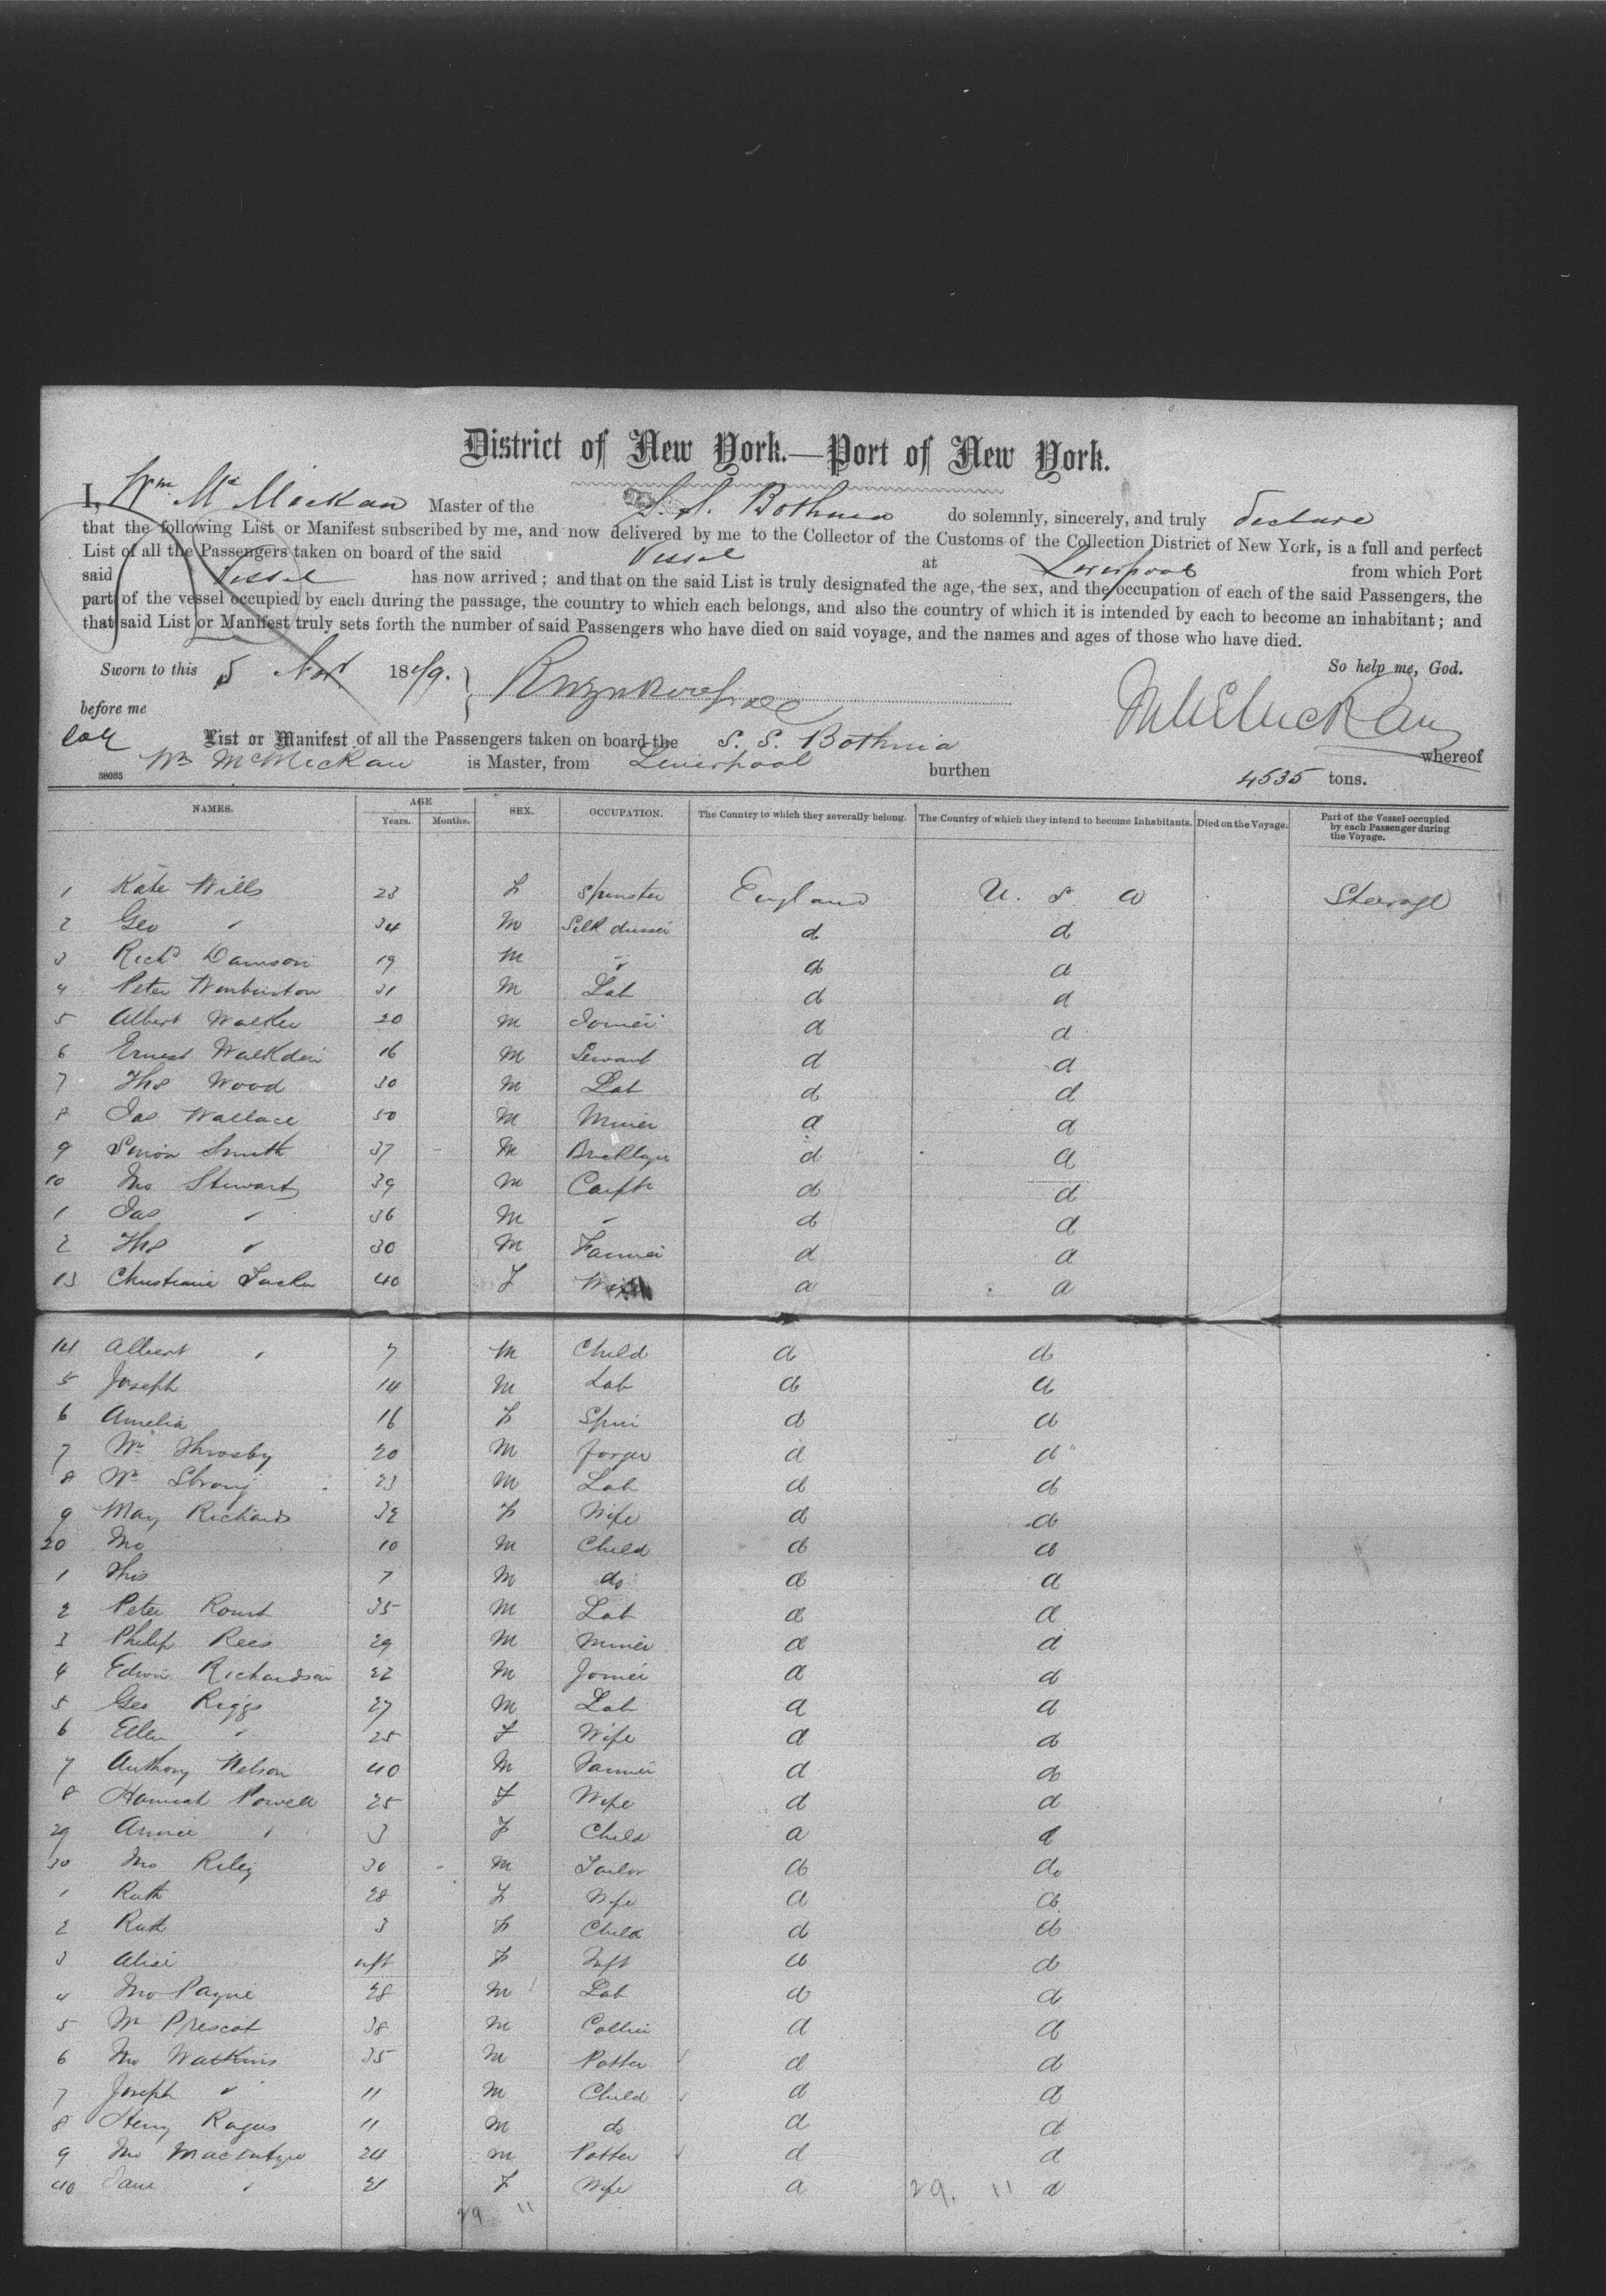 District of New York.—Port of New York.
I, Wm. Mc Mickan Master of the S. S. Bothnia do solemnly, sincerely, and truly declare
that the following List or Manifest subscribed by me, and now delivered by me to the Collector of the Customs of the Collection District of New York, is a full and perfect
List of all the Passengers taken on board of the said Vessel at Liverpool from which Port
said Vessel has now arrived; and that on the said List is truly designated the age, the sex, and the occupation of each of the said Passengers, the
part of the vessel occupied by each during the passage, the country to which each belongs, and also the country of which it is intended by each to become an inhabitant; and
that said List or Manifest truly sets forth the number of said Passengers who have died on said voyage, and the names and ages of those who have died.
So help me, God.
Sworn to this 5 Nov 1879.
before me
List or Manifest of all the Passengers taken on board the S. S. Bothnia whereof
Wm McMickan is Master, from Liverpool burthen 4535 tons.
38035
NAMES. AGE Years. Months. SEX. OCCUPATION. The Country to which they severally belong. The Country of which they intend to become Inhabitants. Died on the Voyage. Part of the Vessel occupied by each Passenger during the Voyage.
1 Kate Wills 23 F Spinster England U. S. A Steerage
2 Geo " 34 M Silk dresser d d
3 Richd Dawson 19 M " d d
4 Peter Wimbuston 31 M Lab d d
5 Albert Walker 20 M Joiner d d
6 Ernest Walkden 16 M Servant d d
7 Thos Wood 30 M Lab d d
8 Jas Wallace 50 M Miner d d
9 Simon Smith 37 - M Bricklayer d d
10 Jno Stewart 39 M Carptr d d
1 Jas " 36 M " d d
2 Thos " 30 M Farmer d d
13 Christiana 40 F Wife d d
14 Albert " 7 M Child d d
5 Joseph 14 M Lab d d
6 Amelia 16 F Spin d d
7 Wm Throsby 20 M forger d d
8 Wm Strong 23 M Lab d d
9 Mary Richards 32 F Wife d d
20 Jno 10 M Child d d
1 Thos 7 M do d d
2 Peter 35 M Lab d d
3 Philip Rees 29 M Miner d d
4 Edwin Richardson 22 M Joiner d d
5 Geo Riggs 27 M Lab d d
6 Ellen " 25 F Wife d d
7 Anthony Nelson 40 M Farmer d d
8 Hannah Powell 25 F Wife d d
29 Annie " 3 F Child d d
30 Jno Riley 30 - M Tailor d do
1 Ruth 28 F Wife d d
2 Ruth 3 F Child d d
3 Alice inft F Inft d d
4 Jno Payne 28 M Lab d d
5 Wm Prescot 38 M Collier d d
6 Jno Watkins 35 M Potter d d
7 Joseph " 11 M Child d d
8 Henry Rogers 11 M do d d
9 Jno Macintyre 24 M Potter d d
40 Jane " 21 F Wife d 29. 11 d
29 11